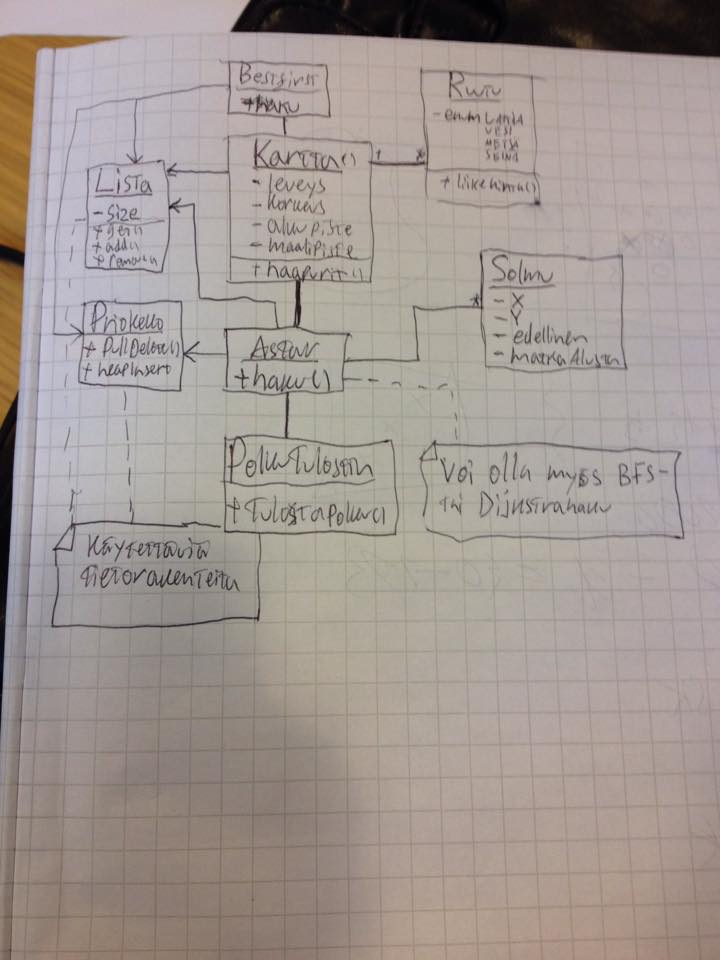 Bestfirst
+haku
Ruutu
- enum LAATTA
VESI
METSA
SEINA
+ liikehinta()
Kartta()
- leveys
- korkeus
- alkupiste
- maalipiste
+
Lista
- Size
+ get()
+ add()
+ remove()
Solmu
- X
- Y
- edellinen
- matkaAlusta
Priokeko
+
+ heapInsert
Astar
+ haku()
PolunTulostin
+ TulostaPolku()
Voi olla myös BFS-
tai Dijkstrahaku
Käytettäviä
tietorakenteita